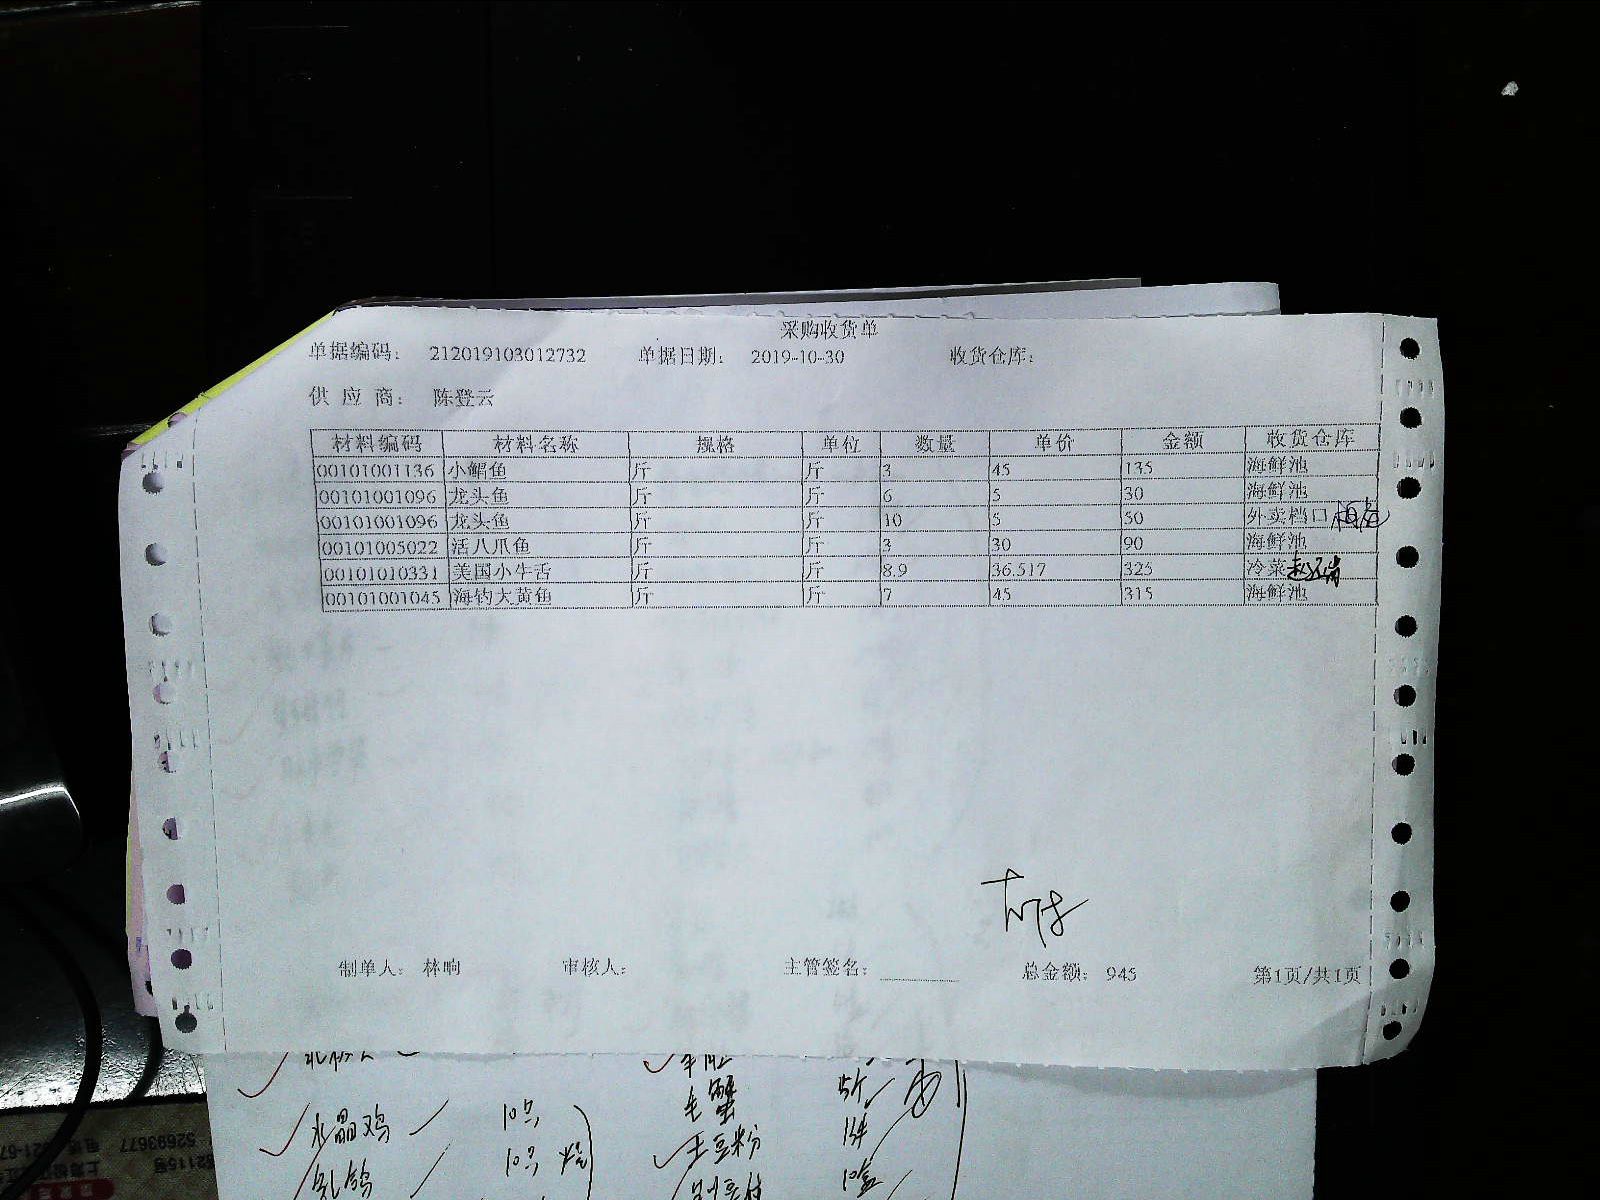 采购收货单
单据编码： 212019103012732 单据日期： 2019-10-30 收货仓库：
供 应 商： 陈登云
材料编码 材料名称 规格 单位 数量 单价 金额 收货仓库
00101001136 小鲳鱼 斤 斤 3 45 135 海鲜池
00101001096 龙头鱼 斤 斤 6 5 30 海鲜池
00101001096 龙头鱼 斤 斤 10 5 50 外卖档口
00101005022 活八爪鱼 斤 斤 3 30 90 海鲜池
00101010331 美国小牛舌 斤 斤 8.9 36.517 325 冷菜
00101001045 海钓大黄鱼 斤 斤 7 45 315 海鲜池
制单人： 林响 审核人： 主管签名： 总金额： 945 第1页/共1页
水晶鸡 10只 毛蟹
乳鸽 10只 土豆粉 10盒
52693677